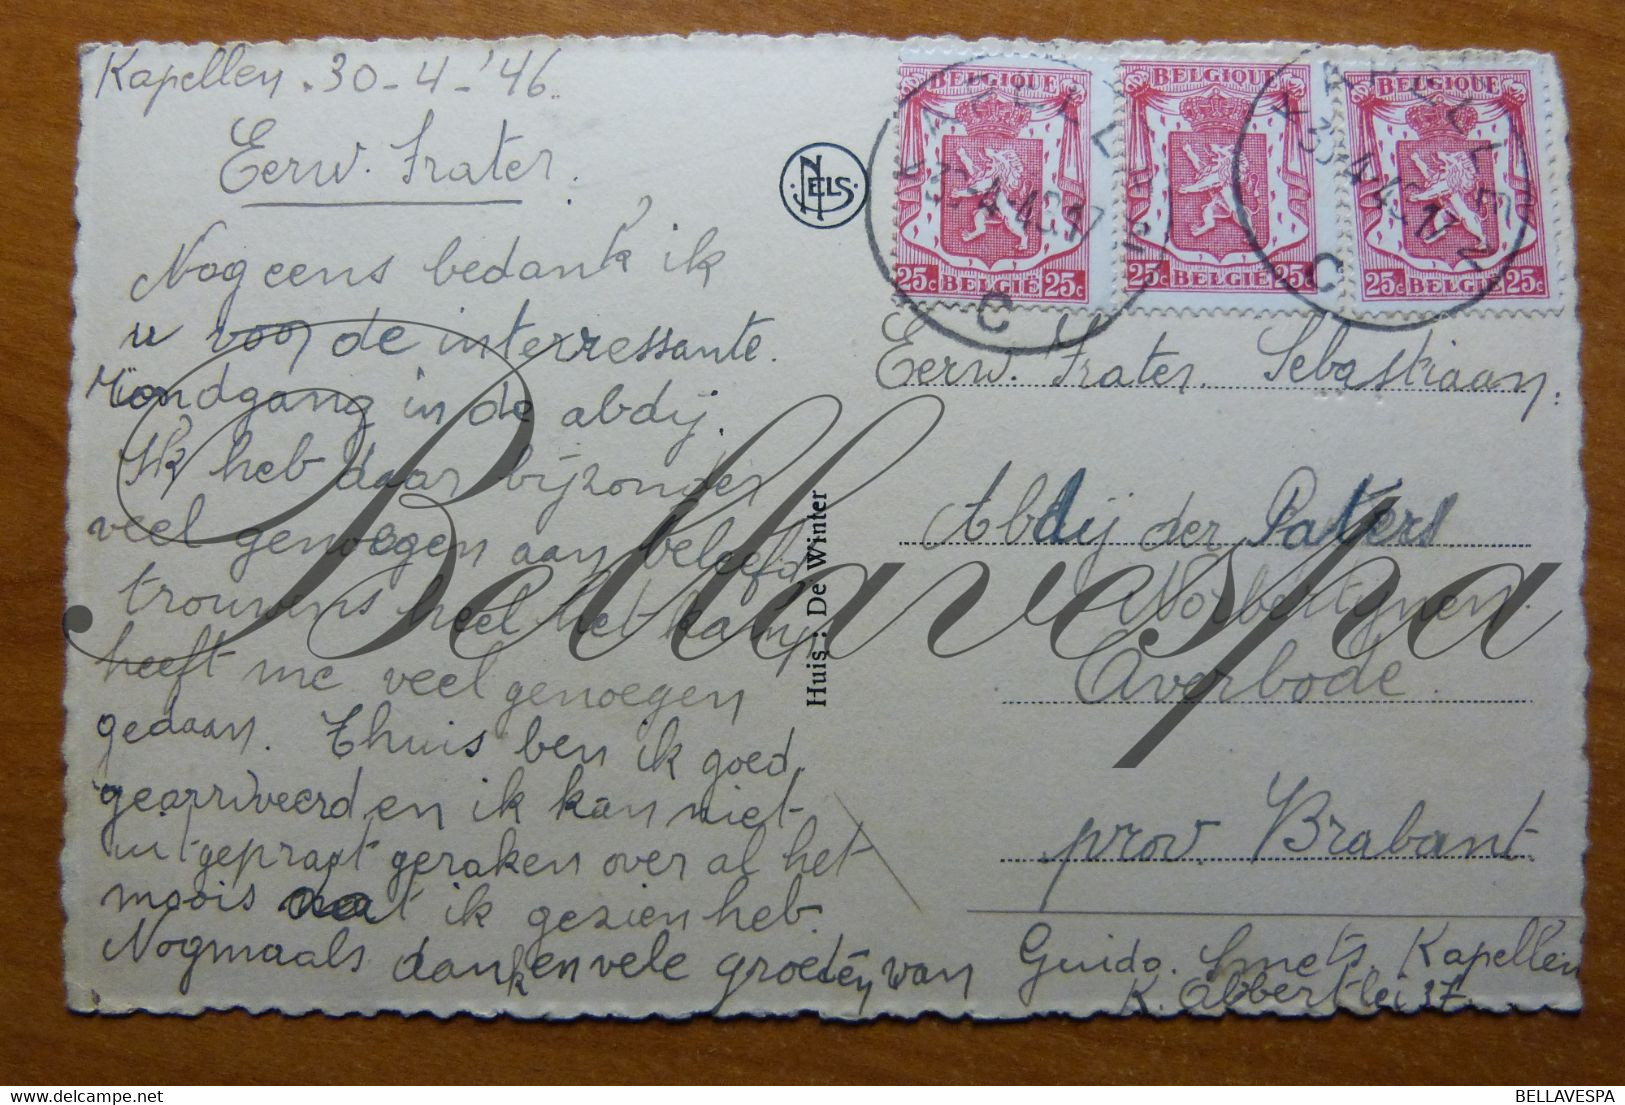 Kapellen. 30-4-'46.
Eerw. Frater.
Nog eens bedank ik
u voor de interressante.
rondgang in de abdij.
Ik heb daar bijzonder
veel genoegen aan beleefd
trouwens heel het kamp
heeft me veel genoegen
gedaan. Thuis ben ik goed
gearriveerd en ik kan niet
uitgepraat geraken over al het
moois wat ik gezien heb.
Nogmaals dank en vele groeten van
Guido. Smets. Kapellen
K. Albertlei 37
NELS
Huis: De Winter
BELGIQUE
25c BELGIË 25c
BELGIQUE
25c BELGIË 25c
BELGIQUE
25c BELGIË 25c
KAPELLEN
C
KAPELLEN
C
Eerw. Frater. Sebastiaan.
Abdij der Paters
Norbertijnen.
Averbode.
prov. Brabant
Bellavespa
BELLAVESPA